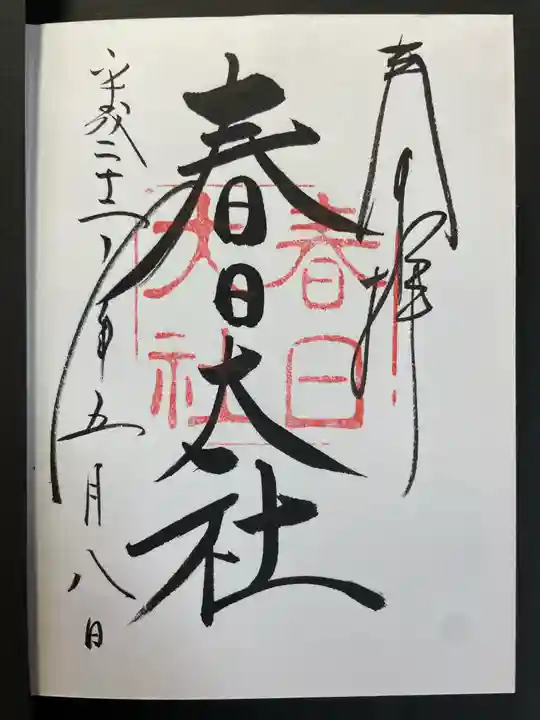 奉拝
春日大社
春日大社
平成二十八年五月八日